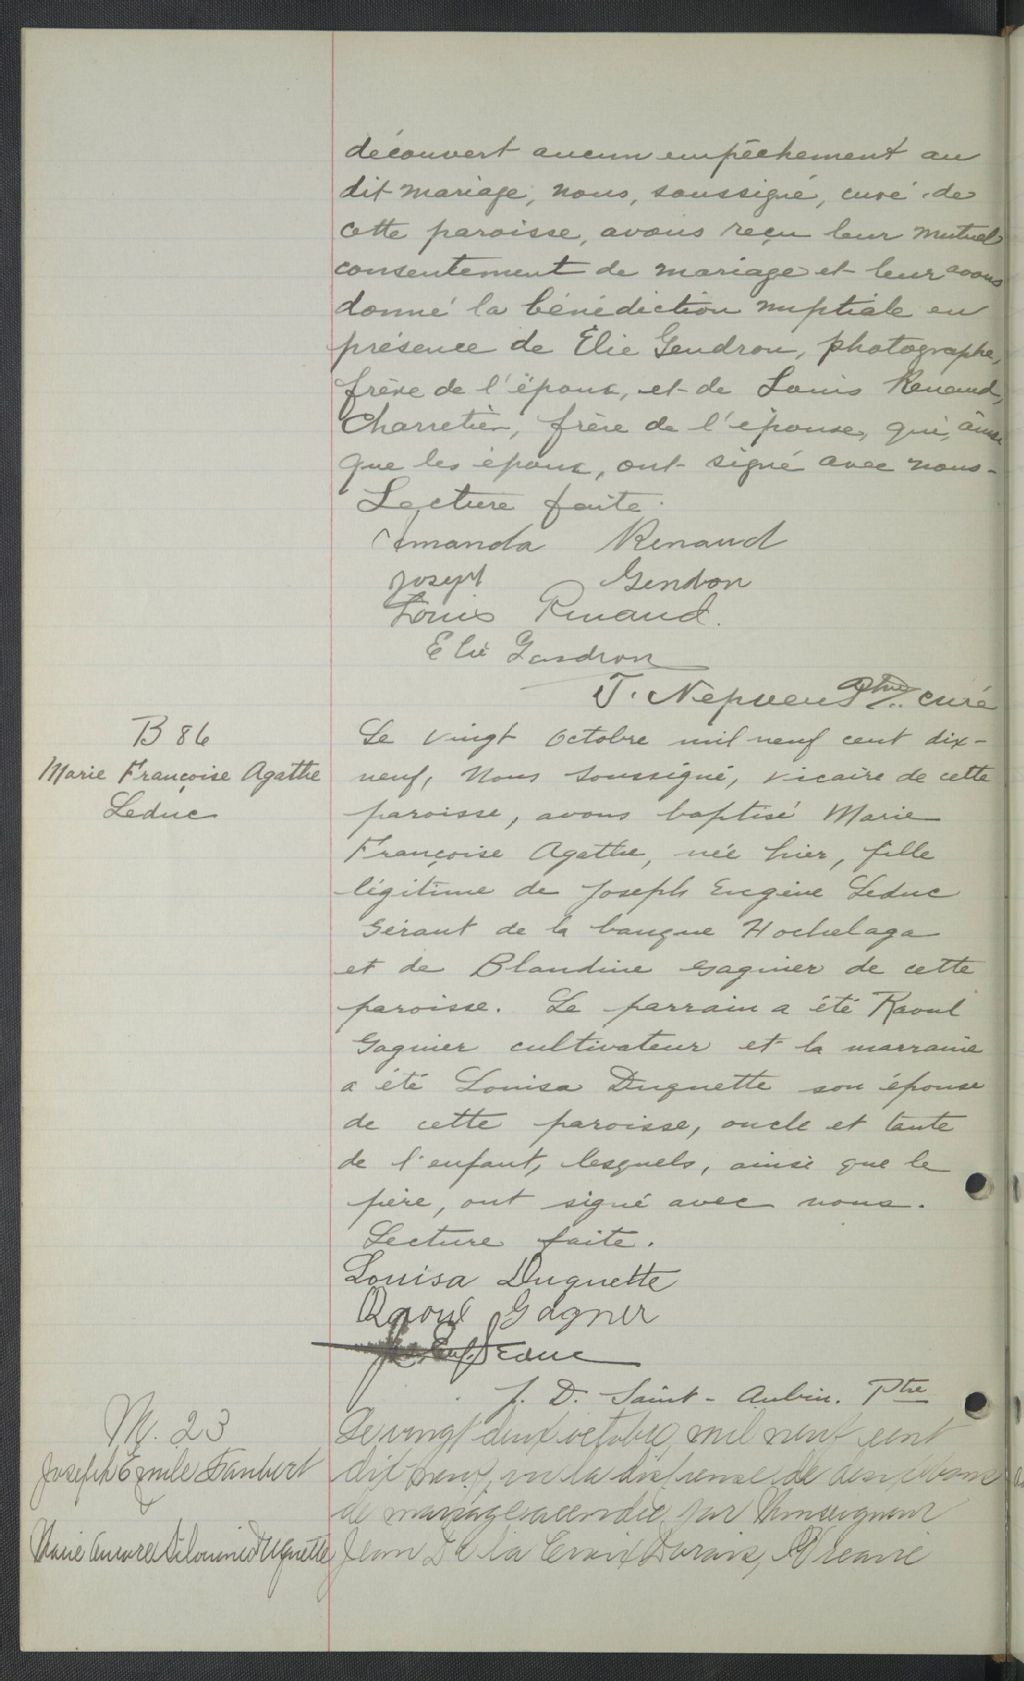 découvert aucun empêchement au
dit mariage, nous, soussigné, curé de
cette paroisse, avons reçu leur mutuel
consentement de mariage et leur avons
donné la bénédiction nuptiale en
présence de Élie Gendron, photographe,
frère de l'époux, et de Louis Renaud,
Charretier, frère de l'épouse, qui, ainsi
que les époux, ont signé avec nous.
Lecture faite.
Amanda Renaud
Joseph Gendon
Louis Renaud.
Elie Gendron
T. Nepveu Ptre curé
B 86
Marie Françoise Agathe
Leduc
Le vingt octobre mil neuf cent dix-
neuf, Nous soussigné, vicaire de cette
paroisse, avons baptisé Marie
Françoise Agathe, née hier, fille
légitime de Joseph Eugène Leduc
Gérant de la banque Hochelaga
et de Blandine Gagnier de cette
paroisse. Le parrain a été Raoul
Gagnier cultivateur et la marraine
a été Louisa Duquette son épouse
de cette paroisse, oncle et tante
de l'enfant, lesquels, ainsi que le
père, ont signé avec nous.
Lecture faite.
Louisa Duquette
Raoul Gagner
Jos. Eug. Leduc
J. D. Saint-Aubin. Ptre
M. 23
Joseph Émile Faubert
&
Marie Aurore Duquette
Le vingt deux octobre, mil neuf cent
dix neuf, vu la dispense de deux bans
de mariage accordée par Monseigneur
Jean De la Croix Dorais, Vicaire